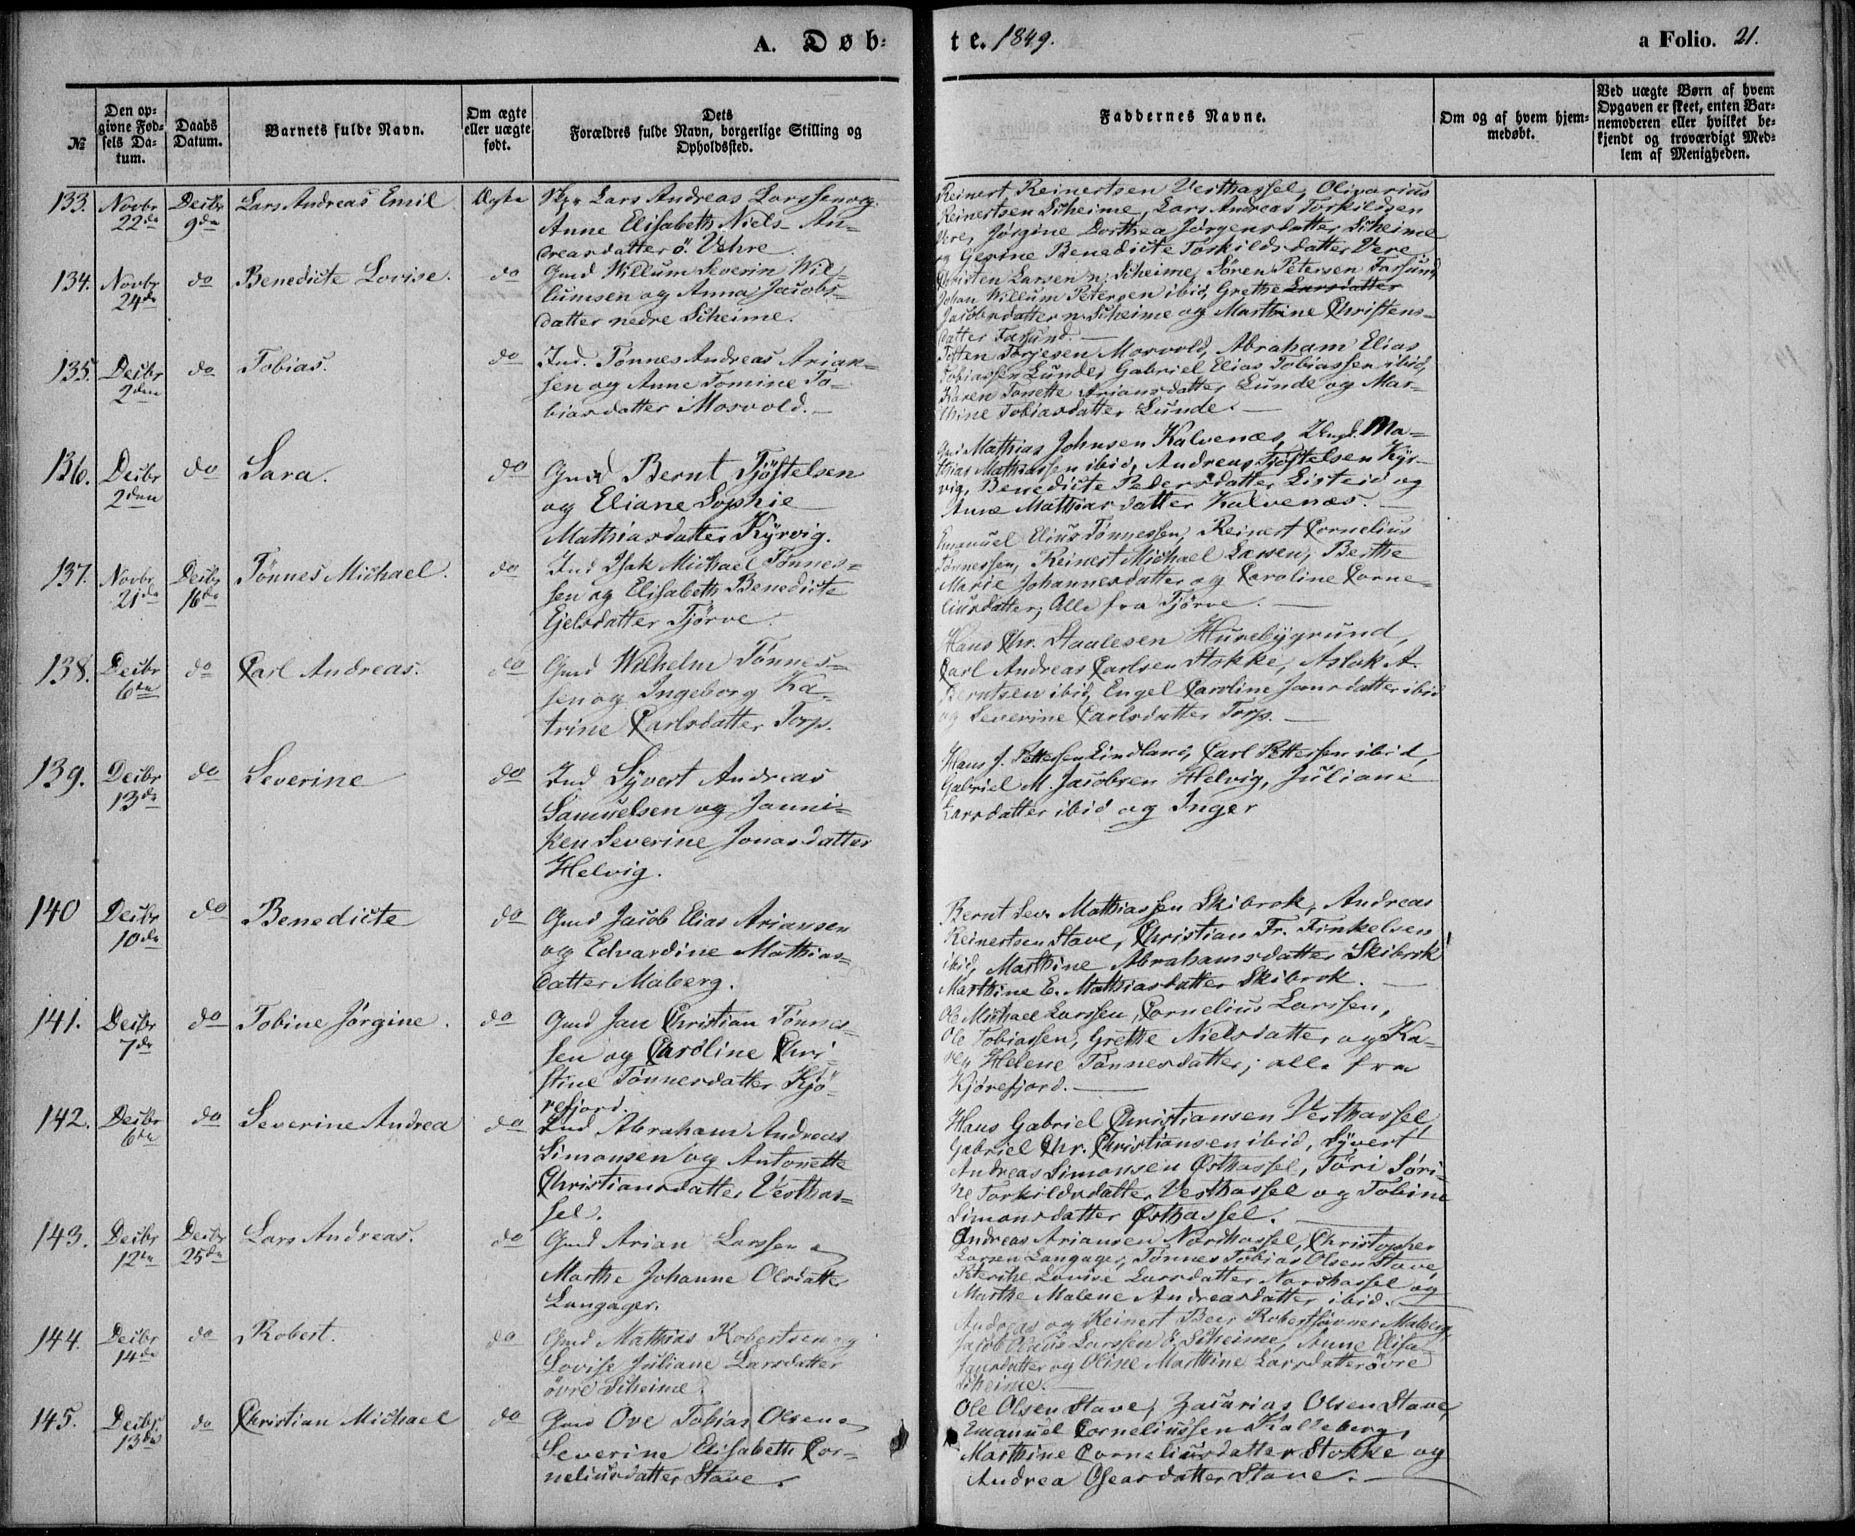 A. Døb=
te. 1849.
a Folio. 21.
№
Den op=
givne Fød=
sels Da=
tum.
Daabs
Datum.
Barnets fulde Navn.
Om ægte
eller uægte
født.
Dets
Forældres fulde Navn, borgerlige Stilling og
Opholdssted.
Faddernes Navne.
Om og af hvem hjem=
medøbt.
Ved uægte Børn af hvem
Opgaven er skeet, enten Bar=
nemoderen eller hvilket be=
kjendt og troværdigt Med=
lem af Menigheden.
133. Novbr 22de Decbr 9de Lars Andreas Emil Ægte
Lars Andreas Larssen og
Anne Elisabeth Niels An=
dreasdatter ö. Vehre
Reinert Reinertsen Vesthassel, Olivarius
Reinertsen Scheime, Lars Andreas Torkildsen
Vere, Jørgine Dorthea Jørgensdatter Scheime
og Gesine Benedicte Torkildsdatter Vere
134. Novbr 24de do Benedicte Lovise. do
Gmd Willum Severin Wil=
lumsen og Anna Jacobs=
datter nedre Scheime.
Christen Larsen n. Scheime, Sören Petersen Farsund,
Johan Willum Petersen ibid, Grethe Larsdatter
Jacobsdatter n. Scheime og Marthine Christens=
datter Farsund.
135. Decbr 2den do Tobias. do
Ind. Tønnes Andreas Arian=
sen og Anne Tomine To=
biasdatter Mosvold.
Torjesen Mosvold, Abraham Elias
Tobiassen Lunde, Gabriel Elias Tobiassen ibid,
Karen Tonette Ariansdatter Lunde og Mar=
thine Tobiasdatter Lunde.
136. Decbr 2den do Sara. do
Gmd Bernt Tjøstelsen
og Eliane Sophie
Mathiasdatter Kyrvig.
Gmd Mathias Johnsen Kalvenæs, Ungk. Ma=
thias Mathiassen ibid, Andreas Tjøstelsen Kyr=
vig, Benedicte Pedersdatter Listeid og
Anne Mathiasdatter Kalvenæs.
137. Novbr 21de Decbr 16de Tønnes Michael. do
Ind Isak Michael Tønnes=
sen og Elisabeth Benedicte
Ejelsdatter Tjörve.
Emanuel Elius Tønnessen, Reinert Cornelius
Tønnessen, Reinert Michael Larsen, Berthe
Marie Johannesdatter og Caroline Corne=
liusdatter; Alle fra Tjörve.
138. Decbr 6te do Carl Andreas. do
Gmd Wilhelm Tønnes=
sen og Ingeborg Ka=
trine Carlsdatter Torp.
Hans Chr. Staalesen Huusebygrund,
Carl Andreas Carlsen Stokke, Aslak A.
Berntsen ibid, Engel Caroline Jansdatter ibid
og Severine Carlsdatter Torp.
139. Decbr 13de do Severine do
Ind Syvert Andreas
Samuelsen og Janni=
ken Severine Jonasdatter
Helvig.
Hans J. Pettersen Lindland, Carl Pettersen ibid,
Gabriel M. Jacobsen Helvig, Juliane
Larsdatter ibid og Inger
140 Decbr 10de do Benedicte do
Gmd Jacob Elias Ariansen
og Edvardine Mathias=
datter Maberg.
Bernt Sev. Mathiassen Skibrok, Andreas
Reinertsen Stave, Christian Fr. Finkelsen
ibid, Marthine Abrahamsdatter Skibrok
Marthine E. Mathiasdatter Skibrok.
141. Decbr 7de do Tobine Jörgine. do
Gmd Jan Christian Tønnes=
sen og Caroline Chri=
stine Tønnesdatter Kjö=
refjord.
Ole Michael Larssen, Cornelius Larssen,
Ole Tobiassen, Grethe Nielsdatter og Ka=
ren Helene Tønnesdatter; alle fra
Kjörefjord.
142. Decbr 6te do Severine Andrea do
Ind Abraham Andreas
Simonsen og Antonette
Christiansdatter Vesthas=
sel.
Hans Gabriel Christiansen Vesthassel,
Gabriel Chr. Christiansen ibid, Syvert
Andreas Simonsen Østhassel, Töri Söri=
ne Torkildsdatter Vesthassel og Tobine
Simonsdatter Østhassel.
143. Decbr 12te Decbr 25de Lars Andreas. do
Gmd Arian Larssen
Marthe Johanne Olsdatter
Langager.
Andreas Ariansen Nordhassel, Christopher
Larsen Langager, Tønnes Tobias Olsen Stave,
Lovise Larsdatter Nordhassel og
Marthe Malene Andreasdatter ibid.
144. Decbr 14de do Robert. do
Gmd Mathias Robertsen og
Lovise Juliane Larsdatter
övre Scheime
Andreas og Reinert Beer Robertsönner Maberg,
Jacob Larssen ö. Scheime, Anne Elisa
Larsdatter og Oline Marthine Larsdatter övre
Scheime.
145. Decbr 13de do Christian Michael do
Gmd Ove Tobias Olsen
Severine Elisabeth Cor=
neliusdatter Stave.
Ole Olsen Stave, Zacarias Olsen Stave,
Emanuel Corneliussen Kalleberg,
Marthine Corneliusdatter Stokke og
Andrea Osearsdatter Stave.